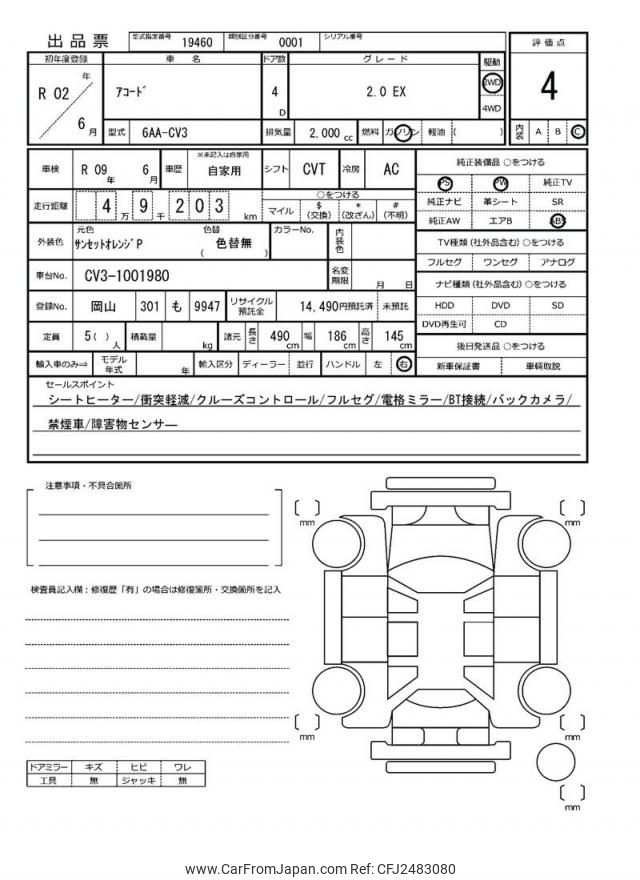 出品票 型式指定番号 19460 類別区分番号 0001 シリアル番号
初年度登録 車 名 ドア数 グレード 駆動
R 02 年 6 月 アコード 4 D 2.0 EX 2WD 4WD
型式 6AA-CV3 排気量 2,000 cc 燃料 ガソリン 軽油 ( )
評価点
4
内装 A B C
車検 R 09 年 6 月 車歴 ※未記入は自家用 自家用 シフト CVT 冷房 AC
走行距離 4 万 9 千 2 0 3 km ○をつける
マイル $ (交換) * (改ざん) # (不明)
外装色 元色 サンセットオレンジP 色替 ( 色替無 ) カラーNo. 内装色
車台No. CV3-1001980 名変期限 月 日
登録No. 岡山 301 も 9947 リサイクル預託金 14,490円預託済 未預託
定員 5( ) 人 積載量 kg 諸元 長さ 490 cm 幅 186 cm 高さ 145 cm
輸入車のみ⇒ モデル年式 年 輸入区分 ディーラー 並行 ハンドル 左 右
純正装備品 ○をつける
PS PW 純正TV
純正ナビ 革シート SR
純正AW エアB ABS
TV種類(社外品含む)○をつける
フルセグ ワンセグ アナログ
ナビ種類(社外品含む)○をつける
HDD DVD SD
DVD再生可 CD
後日発送品 ○をつける
新車保証書 車輌取説
セールスポイント
シートヒーター/衝突軽減/クルーズコントロール/フルセグ/電格ミラー/BT接続/バックカメラ/
禁煙車/障害物センサー
注意事項・不具合箇所
検査員記入欄：修復歴「有」の場合は修復箇所・交換箇所を記入
[ ] mm
[ ] mm
[ ] mm
[ ] mm
[ ] mm
ドアミラー キズ ヒビ ワレ
工具 無 ジャッキ 無
www.CarFromJapan.com Ref: CFJ2483080